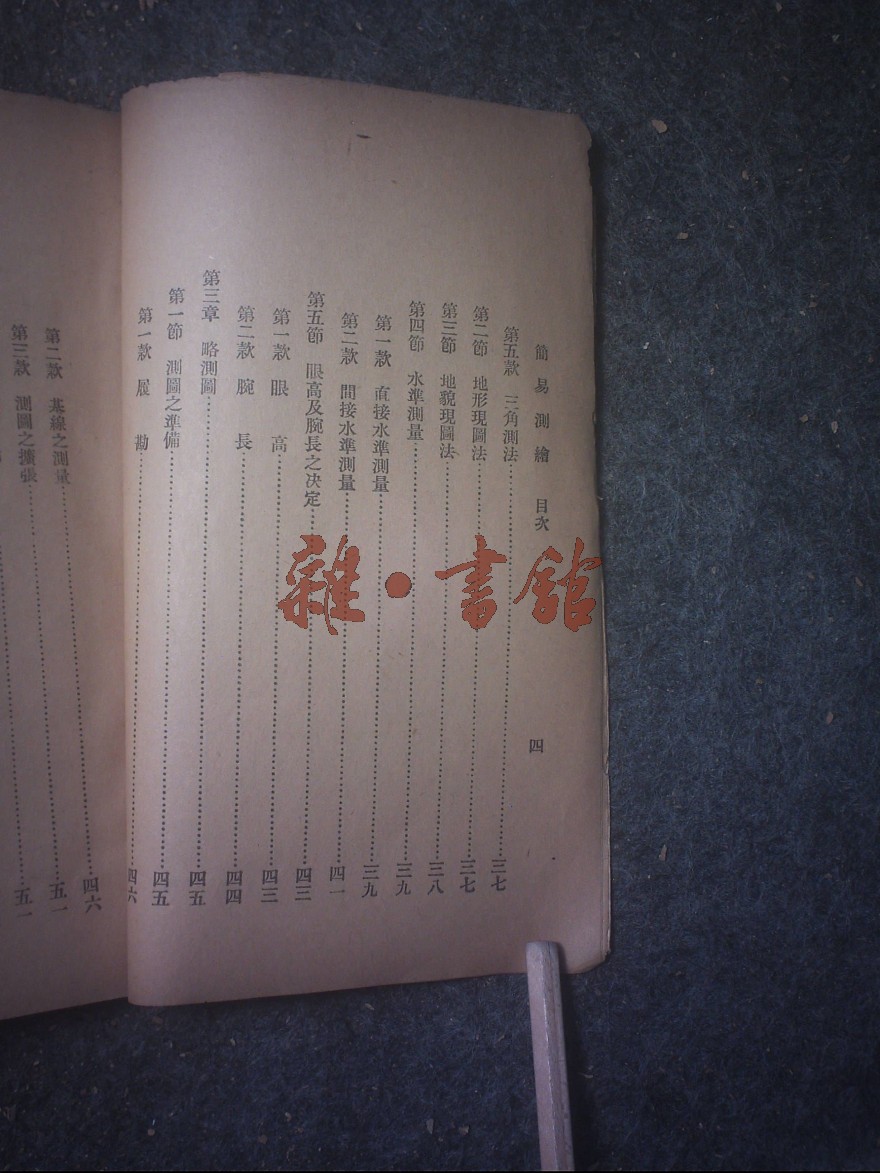 簡易測繪 目次 四
第五款 三角測法 三七
第二節 地形現圖法 三七
第三節 地貌現圖法 三八
第四節 水準測量 三九
第一款 直接水準測量 三九
第二款 間接水準測量 四一
第五節 眼高及腕長之決定 四三
第一款 眼高 四三
第二款 腕長 四四
第三章 略測圖 四五
第一節 測圖之準備 四五
第一款 履勘 四六
四六
第二款 基線之測量 五一
第三款 測圖之擴張 五一
雜·書館